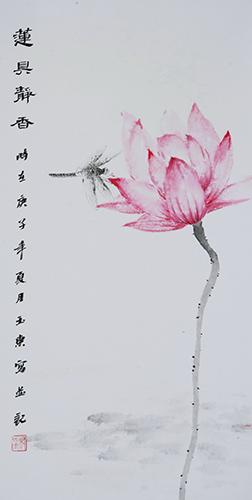 蓮具靜香
時在庚子年夏月玉東寫並記